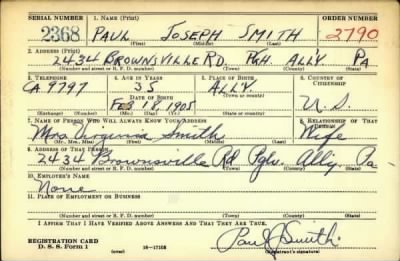 SERIAL NUMBER 1. NAME (Print) ORDER NUMBER
2368 PAUL JOSEPH SMITH 2790
(First) (Middle) (Last)
2. ADDRESS (Print)
2434 BROWNSVILLE RD. PGH. ALL'Y. PA
(Number and street or R. F. D. number) (Town) (County) (State)
3. TELEPHONE 4. AGE IN YEARS 5. PLACE OF BIRTH 6. COUNTRY OF CITIZENSHIP
CA 9797 35 ALLY.
DATE OF BIRTH (Town or county)
FEB 18, 1905 U.S.
(Exchange) (No.) (Mo.) (Day) (Yr.) (State or country)
7. NAME OF PERSON WHO WILL ALWAYS KNOW YOUR ADDRESS 8. RELATIONSHIP OF THAT PERSON
Mrs Virginia Smith Wife
(Mr., Mrs., Miss) (First) (Middle) (Last)
9. ADDRESS OF THAT PERSON
2434 Brownsville Rd Pgh. Ally. Pa
(Number and street or R. F. D. number) (Town) (County) (State)
10. EMPLOYER'S NAME
None
11. PLACE OF EMPLOYMENT OR BUSINESS
(Number and street or R. F. D. number) (Town) (County) (State)
I AFFIRM THAT I HAVE VERIFIED ABOVE ANSWERS AND THAT THEY ARE TRUE.
REGISTRATION CARD
D. S. S. Form 1 (over) 16—17105
Paul J Smith
(Registrant's signature)